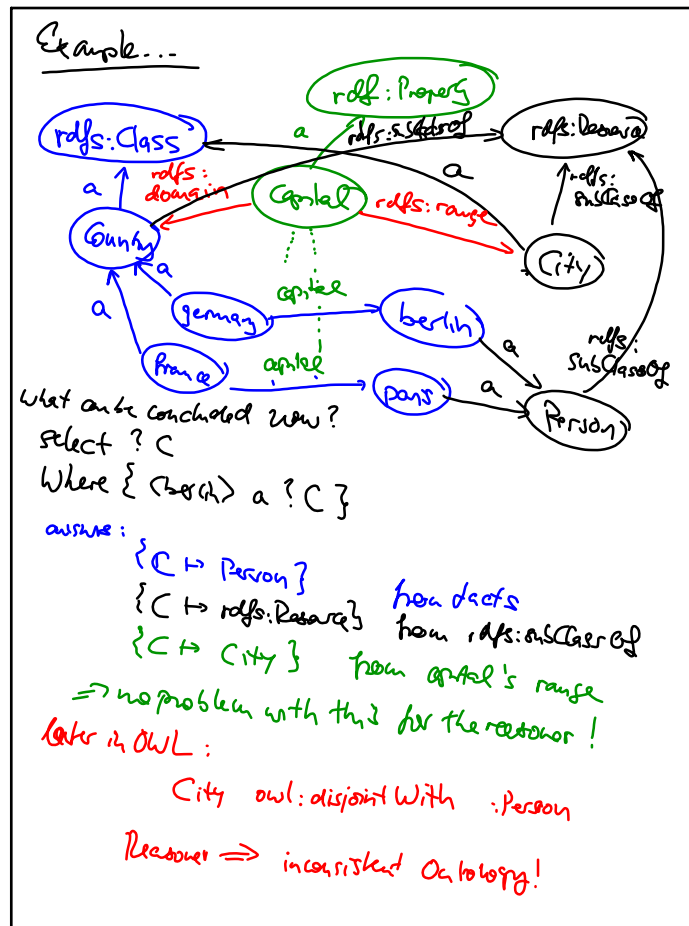 Example...
rdf:Property
rdfs:Class
a
rdfs:subClassOf
rdfs:Resource
a
rdfs:
domain
a
capital
rdfs:range
rdfs:
subClassOf
Country
City
a
capital
a
germany
berlin
rdfs:
subClassOf
a
france
capital
paris
a
Person
what can be concluded now?
select ?C
Where { <berlin> a ?C }
answers:
{C ↦ Person} from facts
{C ↦ rdfs:Resource} from rdfs:subClassOf
{C ↦ City} from capital's range
=> no problem with this for the reasoner!
later in OWL:
City owl:disjointWith :Person
Reasoner => inconsistent Ontology!